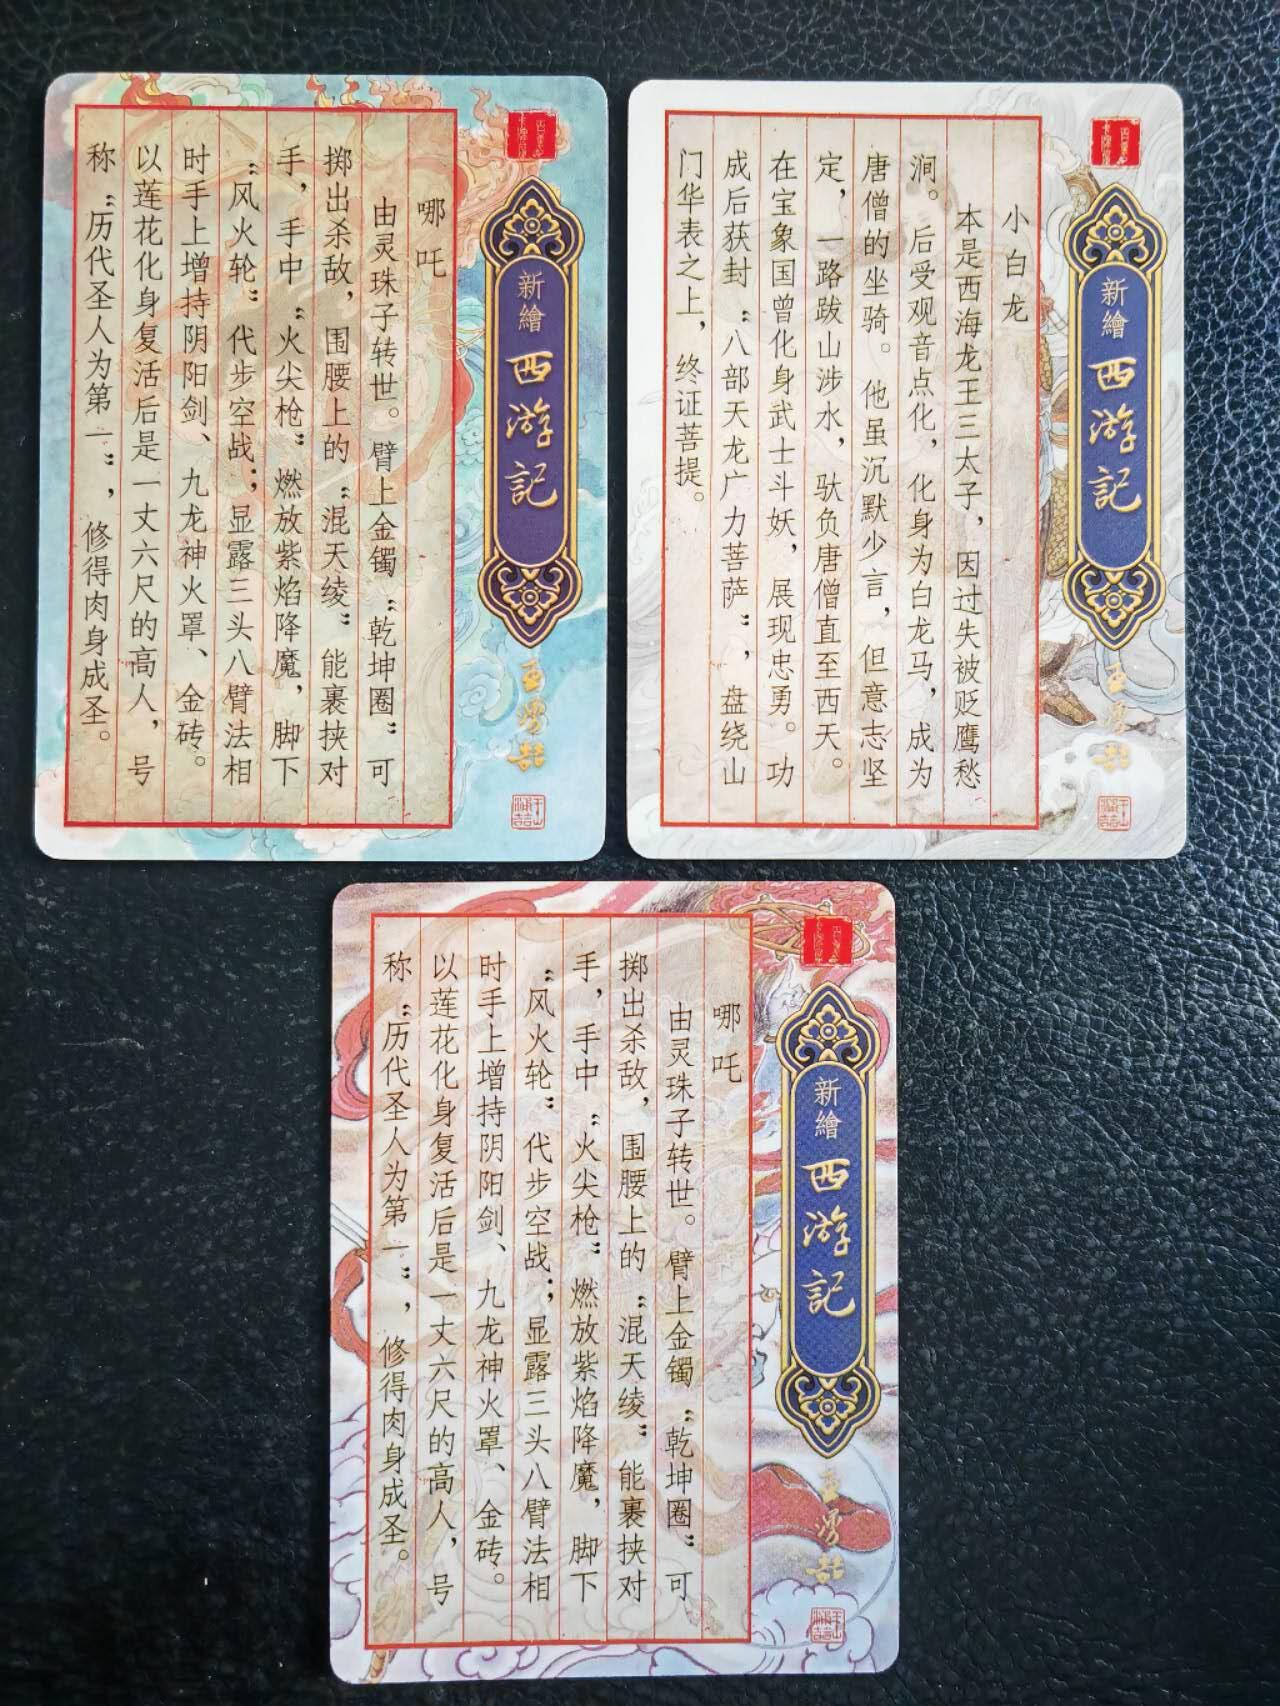 新繪
西游記
哪吒
由灵珠子转世。臂上金镯“乾坤圈”可
掷出杀敌，围腰上的“混天绫”能裹挟对
手，手中“火尖枪”燃放紫焰降魔，脚下
“风火轮”代步空战；显露三头八臂法相
时手上增持阴阳剑、九龙神火罩、金砖。
以莲花化身复活后是一丈六尺的高人，号
称“历代圣人为第一”，修得肉身成圣。
新繪
西游記
小白龙
本是西海龙王三太子，因过失被贬鹰愁
涧。后受观音点化，化身为白龙马，成为
唐僧的坐骑。他虽沉默少言，但意志坚
定，一路跋山涉水，驮负唐僧直至西天。
在宝象国曾化身武士斗妖，展现忠勇。功
成后获封“八部天龙广力菩萨”，盘绕山
门华表之上，终证菩提。
新繪
西游記
哪吒
由灵珠子转世。臂上金镯“乾坤圈”可
掷出杀敌，围腰上的“混天绫”能裹挟对
手，手中“火尖枪”燃放紫焰降魔，脚下
“风火轮”代步空战；显露三头八臂法相
时手上增持阴阳剑、九龙神火罩、金砖。
以莲花化身复活后是一丈六尺的高人，号
称“历代圣人为第一”，修得肉身成圣。